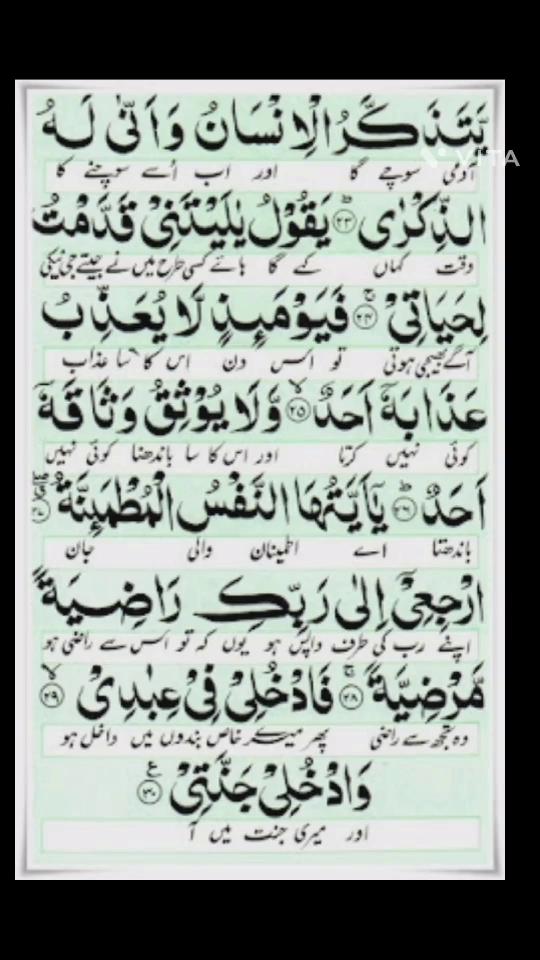 يَّتَذَكَّرُ الْاِنْسَانُ وَاَنّٰى لَهُ
آدمی سوچے گا اور اب اُسے سوچنے کا
VITA
الذِّكْرٰى ؕ ۲۳ يَقُوْلُ يٰلَيْتَنِيْ قَدَّمْتُ
وقت کہاں کہے گا ہائے کسی طرح میں نے جیتے جی نیکی
لِحَيَاتِيْ ۚ ۲۴ فَيَوْمَىِٕذٍ لَّا يُعَذِّبُ
آگے بھیجی ہوتی تو اس دن اس کا سا عذاب
عَذَابَهٗۤ اَحَدٌ ۙ ۲۵ وَّلَا يُوْثِقُ وَثَاقَهٗۤ
کوئی نہیں کرتا اور اس کا سا باندھنا کوئی نہیں
اَحَدٌ ؕ ۲۶ يٰۤاَيَّتُهَا النَّفْسُ الْمُطْمَىِٕنَّةُ
باندھتا اے اطمینان والی جان
ارْجِعِيْۤ اِلٰى رَبِّكِ رَاضِيَةً
اپنے رب کی طرف واپس ہو یوں کہ تو اس سے راضی ہو
مَّرْضِيَّةً ۚ ۲۸ فَادْخُلِيْ فِيْ عِبٰدِيْ ۙ ۲۹
وہ تجھ سے راضی پھر میرے خاص بندوں میں داخل ہو
وَادْخُلِيْ جَنَّتِيْ ع ۳۰
اور میری جنت میں آ